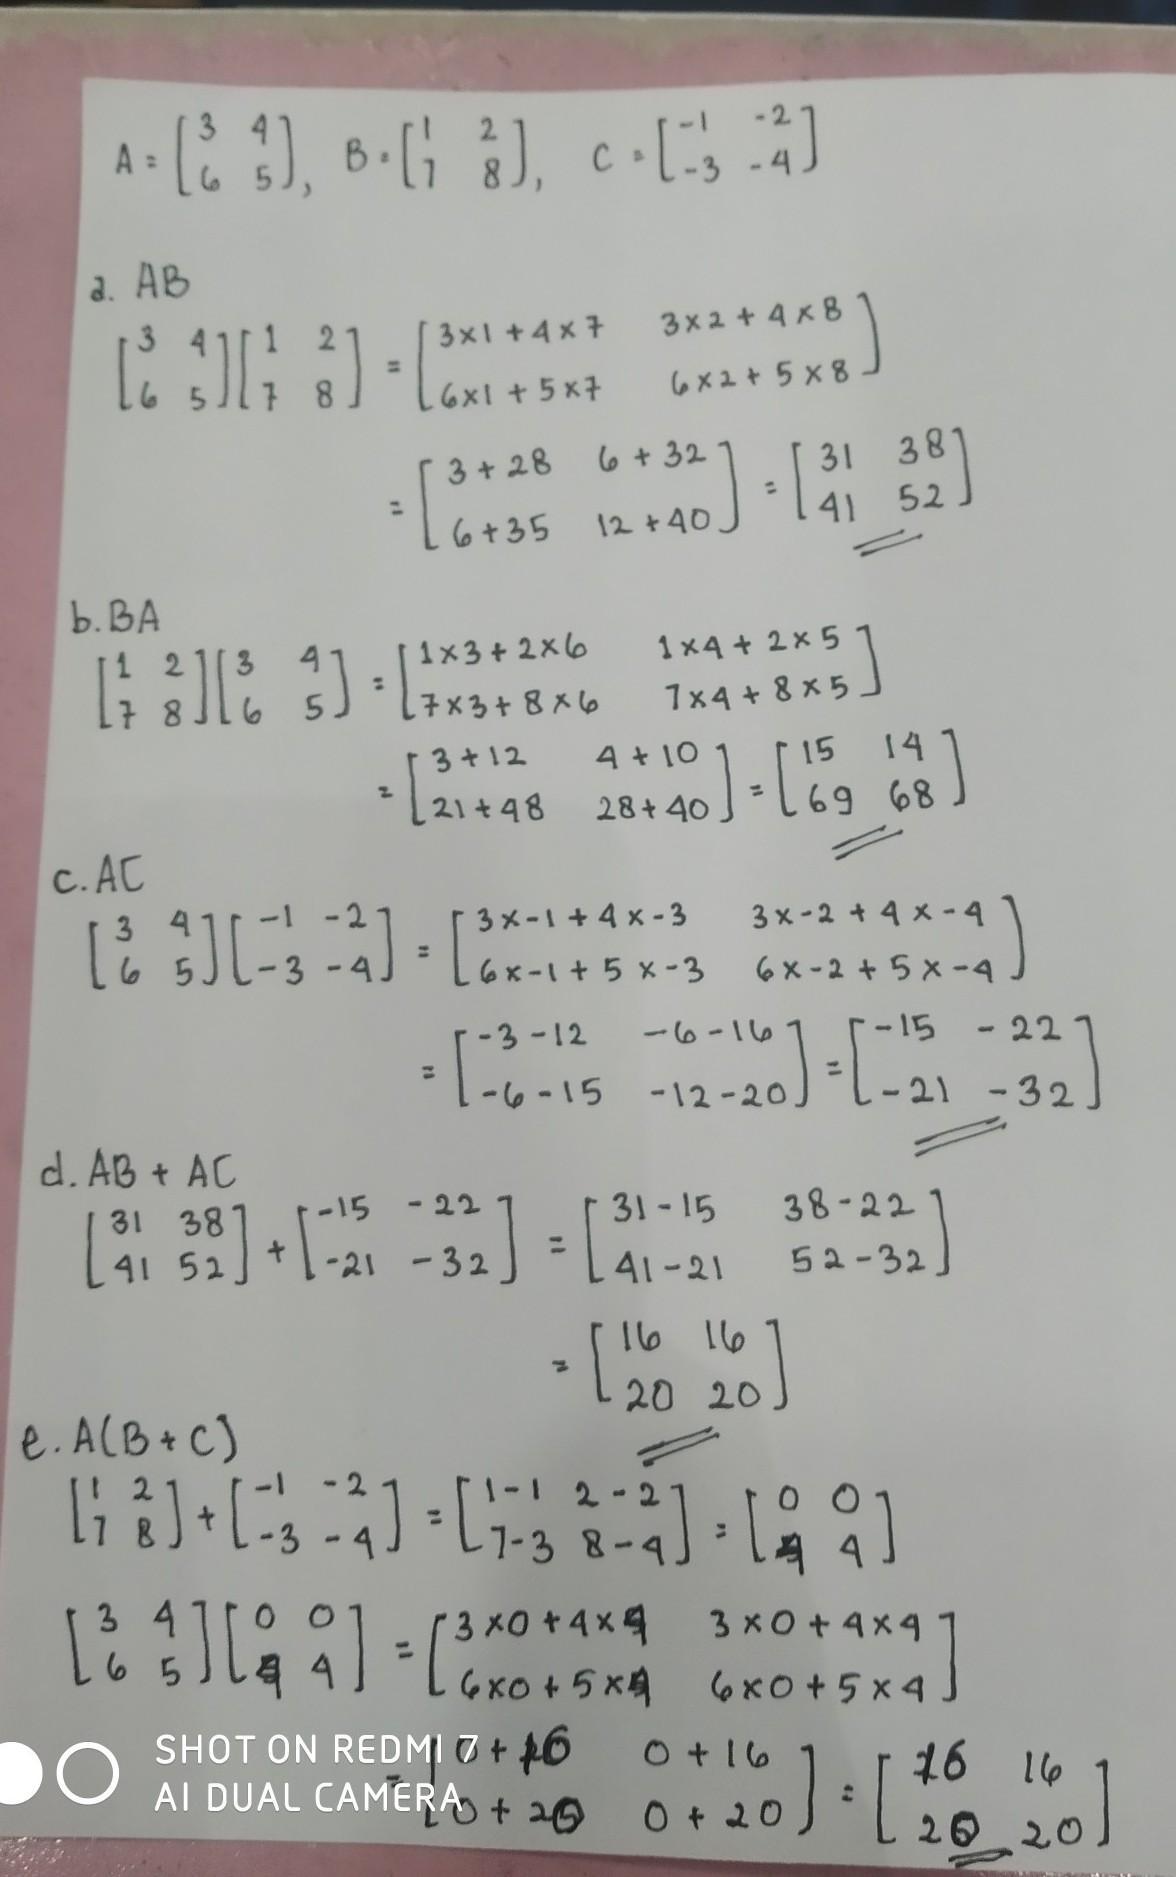 A = [3 4 6 5], B = [1 2 7 8], C = [-1 -2 -3 -4]
a. AB
[3 4 6 5][1 2 7 8] = [3×1+4×7 3×2+4×8 6×1+5×7 6×2+5×8]
= [3+28 6+32 6+35 12+40] = [31 38 41 52]
b. BA
[1 2 7 8][3 4 6 5] = [1×3+2×6 1×4+2×5 7×3+8×6 7×4+8×5]
= [3+12 4+10 21+48 28+40] = [15 14 69 68]
c. AC
[3 4 6 5][-1 -2 -3 -4] = [3×-1+4×-3 3×-2+4×-4 6×-1+5×-3 6×-2+5×-4]
= [-3-12 -6-16 -6-15 -12-20] = [-15 -22 -21 -32]
d. AB + AC
[31 38 41 52] + [-15 -22 -21 -32] = [31-15 38-22 41-21 52-32]
= [16 16 20 20]
e. A(B+C)
[1 2 7 8] + [-1 -2 -3 -4] = [1-1 2-2 7-3 8-4] = [0 0 4 4]
[3 4 6 5][0 0 4 4] = [3×0+4×4 3×0+4×4 6×0+5×4 6×0+5×4]
= [0+16 0+16 0+20 0+20] = [16 16 20 20]
SHOT ON REDMI 7
AI DUAL CAMERA